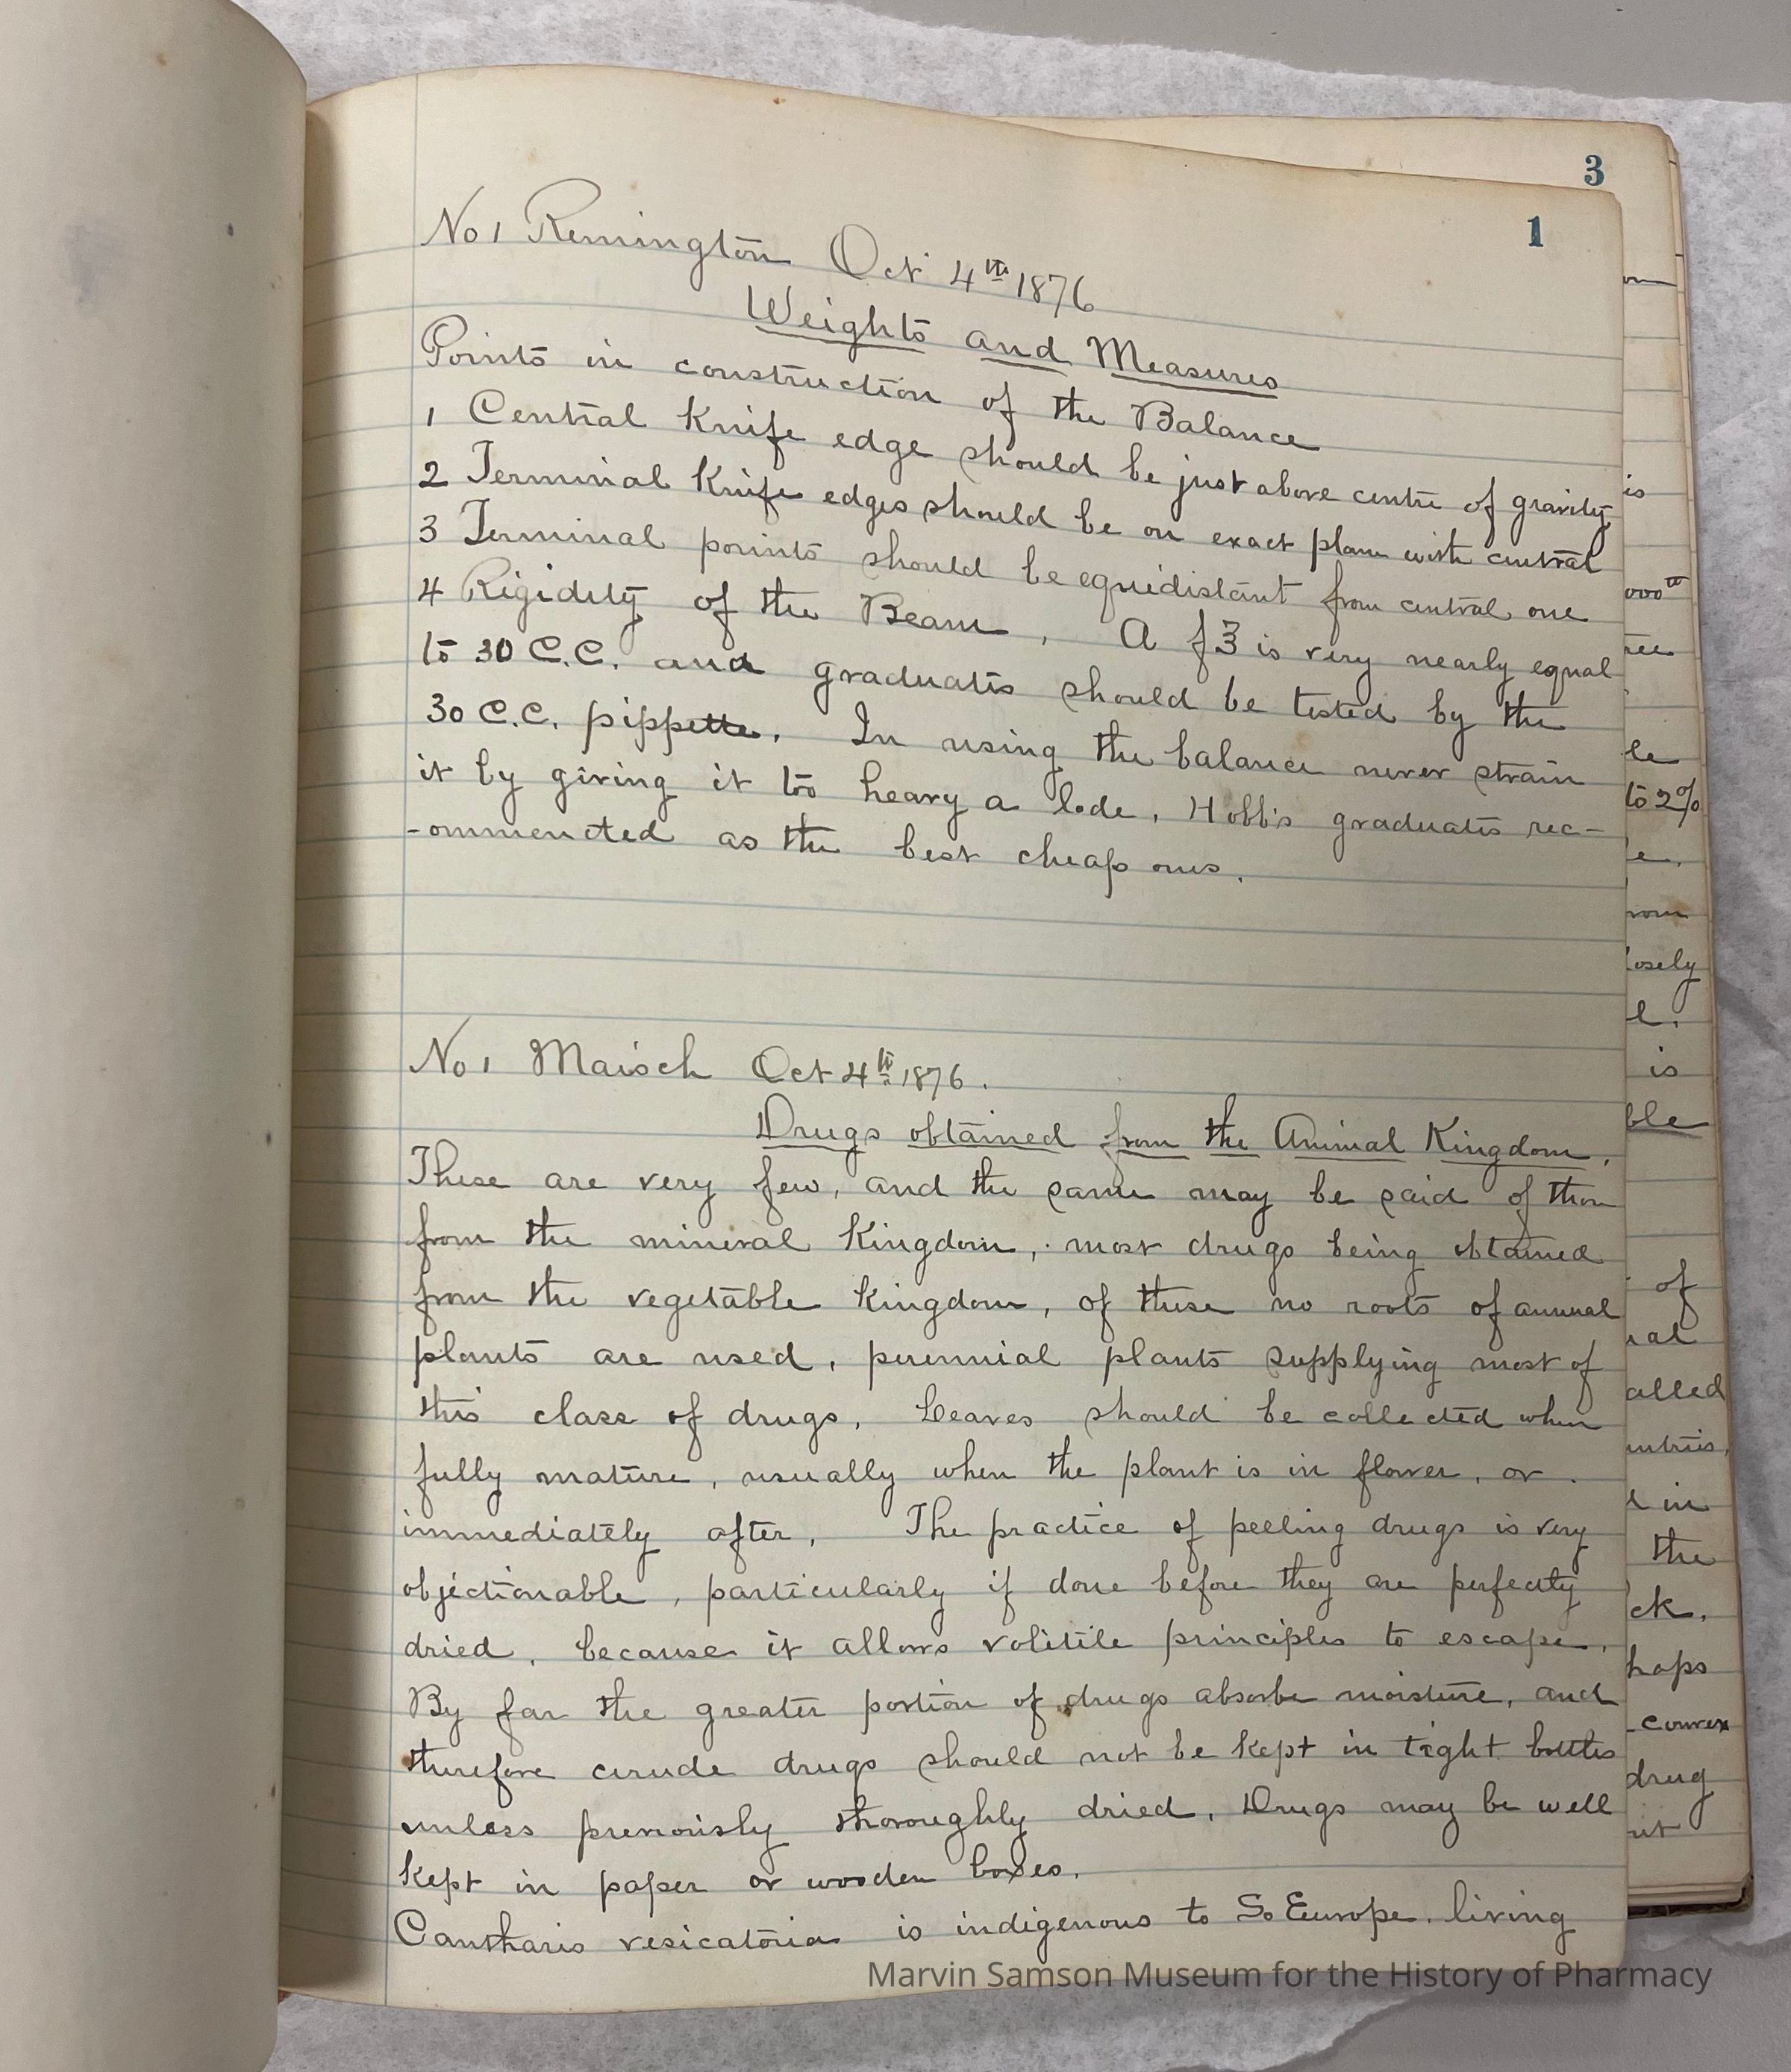 3
1
No 1 Remington Oct 4th 1876
Weights and Measures
Points in construction of the Balance
1 Central Knife edge should be just above centre of gravity
2 Terminal Knife edges should be on exact plane with central
3 Terminal points should be equidistant from central one
4 Rigidity of the Beam. A f℥ is very nearly equal
to 30 C.C. and graduates should be tested by the
30 C.C. pippette. In using the balance never strain
it by giving it too heavy a lode. Hobb's graduates rec-
-ommended as the best cheap ones.
No 1 Maisch Oct 4th 1876.
Drugs obtained from the Animal Kingdom.
These are very few, and the same may be said of those
from the mineral Kingdom, most drugs being obtained
from the vegetable Kingdom, of these no roots of annual
plants are used, perennial plants supplying most of
this class of drugs. Leaves should be collected when
fully mature, usually when the plant is in flower, or
immediately after. The practice of peeling drugs is very
objectionable, particularly if done before they are perfectly
dried, because it allows volitile principles to escape.
By far the greater portion of drugs absorbe moisture, and
therefore crude drugs should not be kept in tight bottles
unless previously thoroughly dried. Drugs may be well
kept in paper or wooden boxes.
Cantharis vesicatoria is indigenous to So Europe. living
is
000th
to 2%
losely
is
ble
of
alled
in
the
ck.
haps
convex
drug
Marvin Samson Museum for the History of Pharmacy